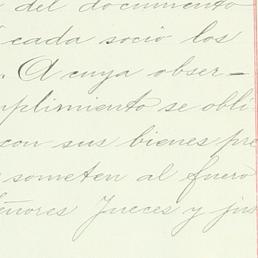 del documento
cada socio los
. A cuya obser-
mplimiento se obli
con sus bienes pre
someten al fuero
eñores Jueces y jus